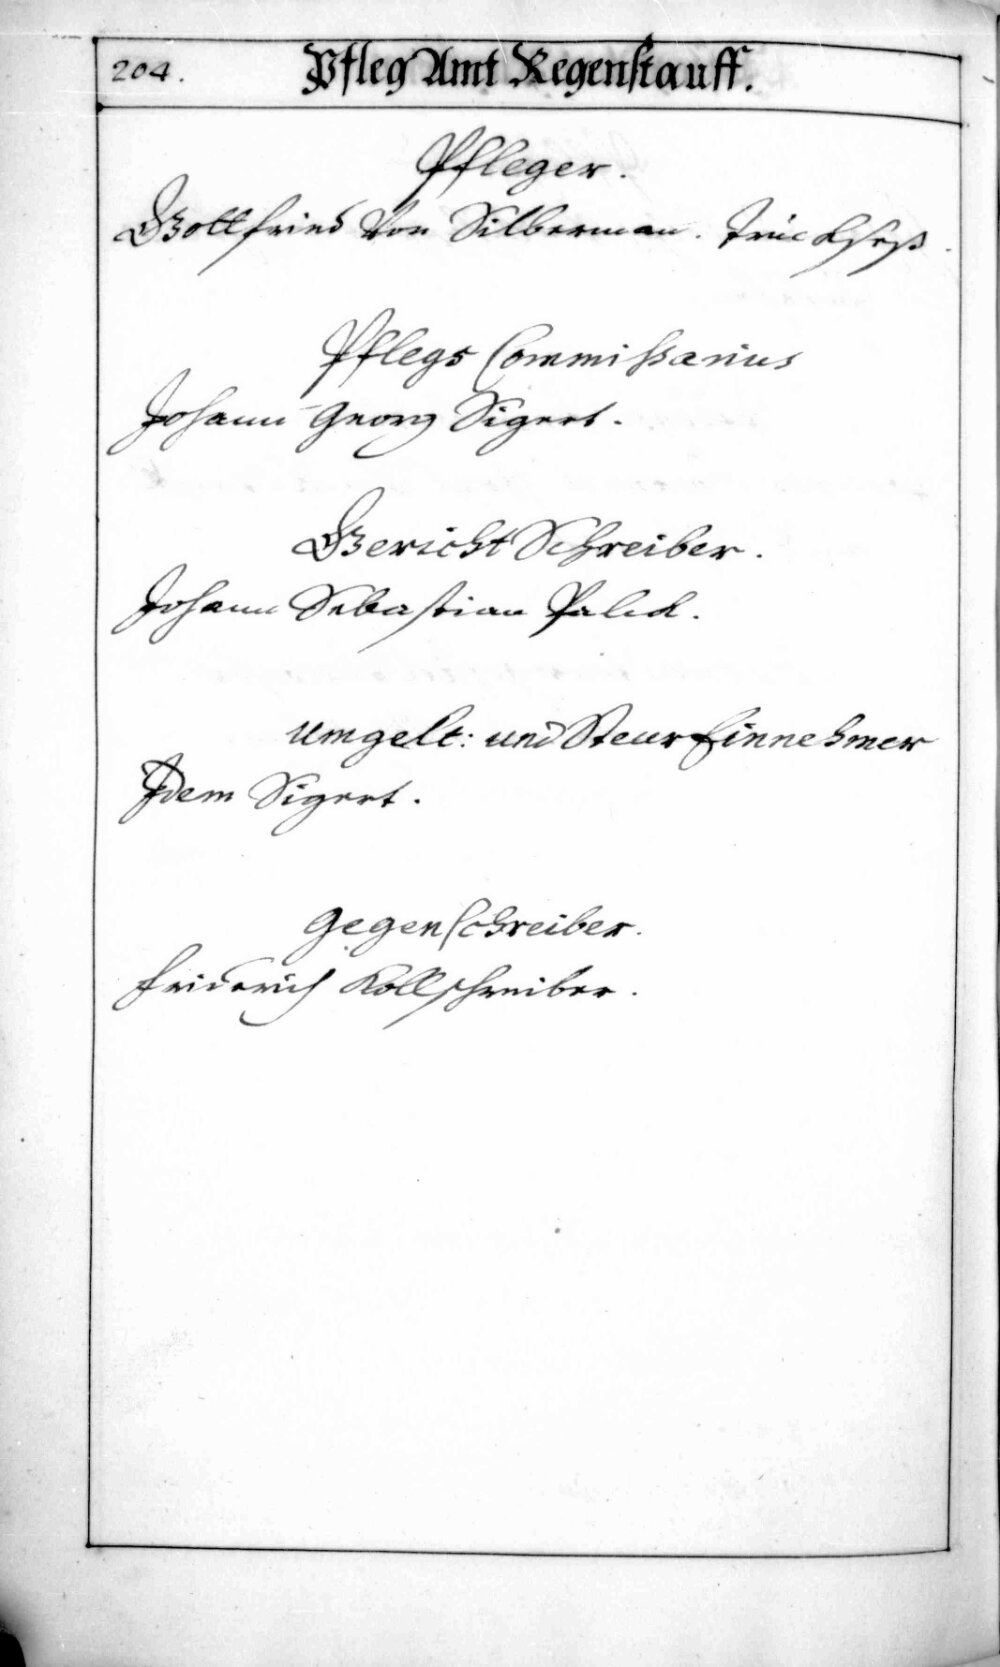 204.
Pfleg Amt Regenstauff.
Pfleger.
Gottfried Von Silberman. Truckhseß
Pflegs Commißarius
Johann Georg Sigert.
Gericht Schreiber.
Johann Sebastian
Umgelt: und Steur Einnehmer
Idem Sigert.
Gegenschreiber.
Friderich Kollschreiber.